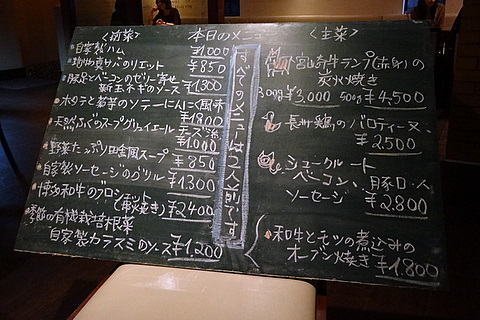 〈前菜〉
本日のメニュー
〈主菜〉
自家製ハム
¥1,000
¥850
豚足とベーコンのゼリー寄せ
新玉ネギのソース ¥1,300
ホタテと筍芽のソテーにんにく風味
¥1,800
天然ふぐのスープグリュイエール
チーズ
¥1,000
野菜たっぷり田舎風スープ
¥850
自家製ソーセージのグリル
¥1,300
博多和牛のブロシェット
(串焼き) ¥2400
季節の有機栽培根菜
自家製カラスミのソース ¥1,200
すべてのメニューは2人前です
宮崎牛ランプ(赤身)の
炭火焼き
300g ¥3,000 500g ¥4,500
長州鶏のバロティーヌ
¥2,500
シュークルート
ベーコン、豚
ソーセージ ¥2,800
和牛とモツの煮込みの
オーブン焼き ¥1,800